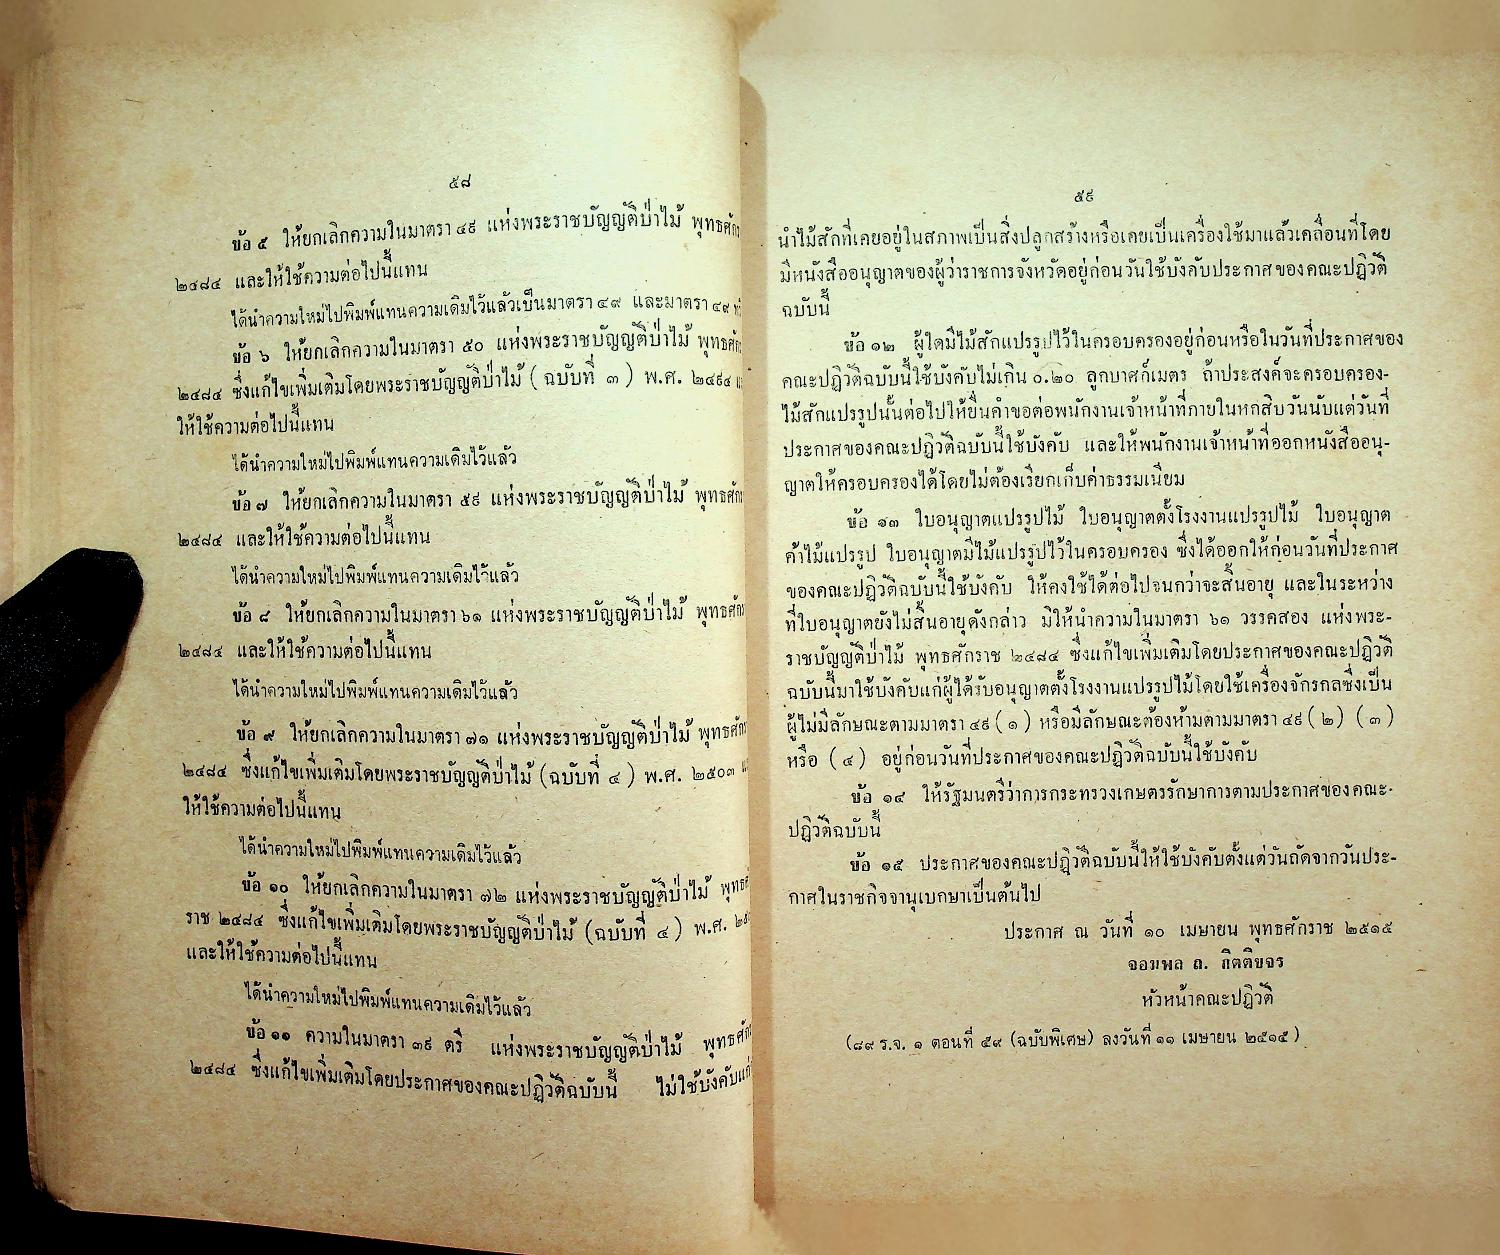 ๕๘
ข้อ ๕ ให้ยกเลิกความในมาตรา ๔๙ แห่งพระราชบัญญัติป่าไม้ พุทธศักร
๒๔๘๔ และให้ใช้ความต่อไปนี้แทน
ได้นำความใหม่ไปพิมพ์แทนความเดิมไว้แล้วเป็นมาตรา ๔๙ และมาตรา ๔๙
ข้อ ๖ ให้ยกเลิกความในมาตรา ๕๐ แห่งพระราชบัญญัติป่าไม้ พุทธศักร
๒๔๘๔ ซึ่งแก้ไขเพิ่มเติมโดยพระราชบัญญัติป่าไม้ (ฉบับที่ ๓) พ.ศ. ๒๔๙๔
ให้ใช้ความต่อไปนี้แทน
ได้นำความใหม่ไปพิมพ์แทนความเดิมไว้แล้ว
ข้อ ๗ ให้ยกเลิกความในมาตรา ๕๙ แห่งพระราชบัญญัติป่าไม้ พุทธศักร
๒๔๘๔ และให้ใช้ความต่อไปนี้แทน
ได้นำความใหม่ไปพิมพ์แทนความเดิมไว้แล้ว
ข้อ ๘ ให้ยกเลิกความในมาตรา ๖๑ แห่งพระราชบัญญัติป่าไม้ พุทธศักร
๒๔๘๔ และให้ใช้ความต่อไปนี้แทน
ได้นำความใหม่ไปพิมพ์แทนความเดิมไว้แล้ว
ข้อ ๙ ให้ยกเลิกความในมาตรา ๗๑ แห่งพระราชบัญญัติป่าไม้ พุทธศักร
๒๔๘๔ ซึ่งแก้ไขเพิ่มเติมโดยพระราชบัญญัติป่าไม้ (ฉบับที่ ๔) พ.ศ. ๒๕๐๓
ให้ใช้ความต่อไปนี้แทน
ได้นำความใหม่ไปพิมพ์แทนความเดิมไว้แล้ว
ข้อ ๑๐ ให้ยกเลิกความในมาตรา ๗๒ แห่งพระราชบัญญัติป่าไม้ พุทธศั
ราช ๒๔๘๔ ซึ่งแก้ไขเพิ่มเติมโดยพระราชบัญญัติป่าไม้ (ฉบับที่ ๔) พ.ศ.
และให้ใช้ความต่อไปนี้แทน
ได้นำความใหม่ไปพิมพ์แทนความเดิมไว้แล้ว
ข้อ ๑๑ ความในมาตรา ๓๙ ตรี แห่งพระราชบัญญัติป่าไม้ พุทธศักร
๒๔๘๔ ซึ่งแก้ไขเพิ่มเติมโดยประกาศของคณะปฏิวัติฉบับนี้ ไม่ใช้บังคับแก่
๕๙
นำไม้สักที่เคยอยู่ในสภาพเป็นสิ่งปลูกสร้างหรือเคยเป็นเครื่องใช้มาแล้วเคลื่อนที่โดย
มีหนังสืออนุญาตของผู้ว่าราชการจังหวัดอยู่ก่อนวันใช้บังคับประกาศของคณะปฏิวัติ
ฉบับนี้
ข้อ ๑๒ ผู้ใดมีไม้สักแปรรูปไว้ในครอบครองอยู่ก่อนหรือในวันที่ประกาศของ
คณะปฏิวัติฉบับนี้ใช้บังคับไม่เกิน ๐.๒๐ ลูกบาศก์เมตร ถ้าประสงค์จะครอบครอง-
ไม้สักแปรรูปนั้นต่อไปให้ยื่นคำขอต่อพนักงานเจ้าหน้าที่ภายในหกสิบวันนับแต่วันที่
ประกาศของคณะปฏิวัติฉบับนี้ใช้บังคับ และให้พนักงานเจ้าหน้าที่ออกหนังสืออนุ-
ญาตให้ครอบครองได้โดยไม่ต้องเรียกเก็บค่าธรรมเนียม
ข้อ ๑๓ ใบอนุญาตแปรรูปไม้ ใบอนุญาตตั้งโรงงานแปรรูปไม้ ใบอนุญาต
ค้าไม้แปรรูป ใบอนุญาตมีไม้แปรรูปไว้ในครอบครอง ซึ่งได้ออกให้ก่อนวันที่ประกาศ
ของคณะปฏิวัติฉบับนี้ใช้บังคับ ให้คงใช้ได้ต่อไปจนกว่าจะสิ้นอายุ และในระหว่าง
ที่ใบอนุญาตยังไม่สิ้นอายุดังกล่าว มิให้นำความในมาตรา ๖๑ วรรคสอง แห่งพระ-
ราชบัญญัติป่าไม้ พุทธศักราช ๒๔๘๔ ซึ่งแก้ไขเพิ่มเติมโดยประกาศของคณะปฏิวัติ
ฉบับนี้มาใช้บังคับแก่ผู้ได้รับอนุญาตตั้งโรงงานแปรรูปไม้โดยใช้เครื่องจักรกลซึ่งเป็น
ผู้ไม่มีลักษณะตามมาตรา ๔๙ (๑) หรือมีลักษณะต้องห้ามตามมาตรา ๔๙ (๒) (๓)
หรือ (๔) อยู่ก่อนวันที่ประกาศของคณะปฏิวัติฉบับนี้ใช้บังคับ
ข้อ ๑๔ ให้รัฐมนตรีว่าการกระทรวงเกษตรรักษาการตามประกาศของคณะ-
ปฏิวัติฉบับนี้
ข้อ ๑๕ ประกาศของคณะปฏิวัติฉบับนี้ให้ใช้บังคับตั้งแต่วันถัดจากวันประ-
กาศในราชกิจจานุเบกษาเป็นต้นไป
ประกาศ ณ วันที่ ๑๐ เมษายน พุทธศักราช ๒๕๑๕
จอมพล ถ. กิตติขจร
หัวหน้าคณะปฏิวัติ
(๘๙ ร.จ. ๑ ตอนที่ ๕๙ (ฉบับพิเศษ) ลงวันที่ ๑๑ เมษายน ๒๕๑๕)